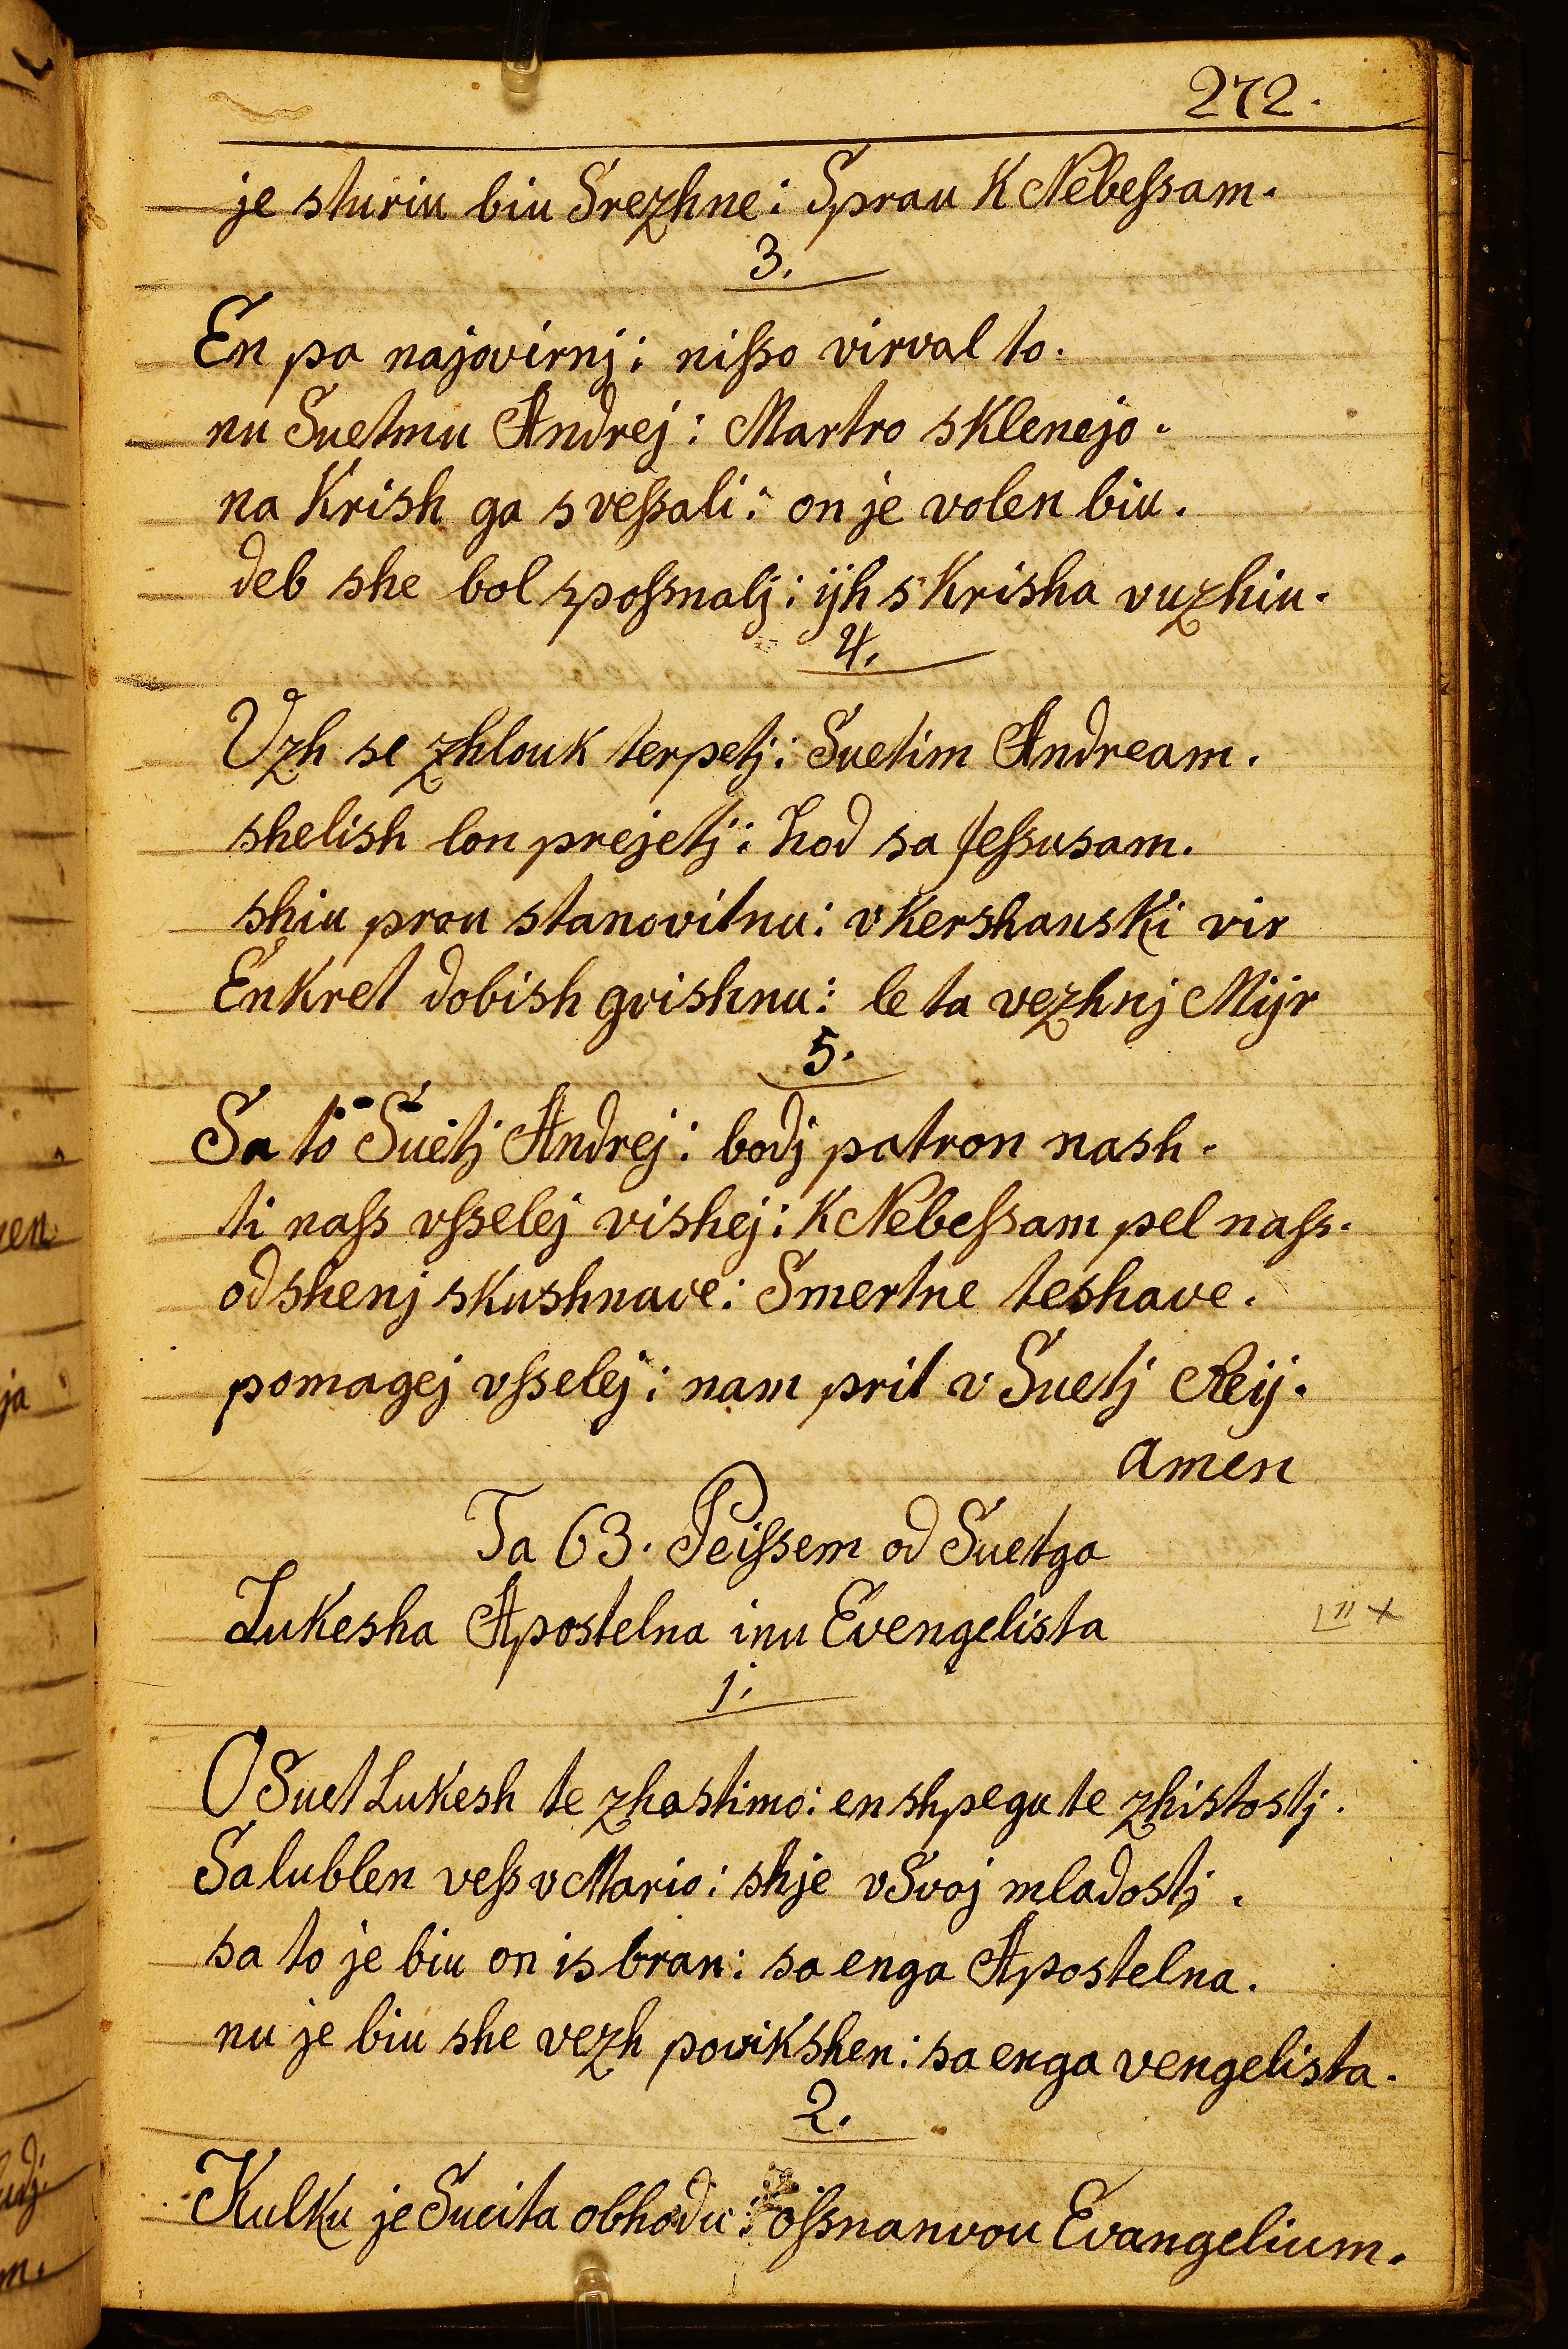 272.
je sturiu biu Srezhne: Sprau K Nebeſsam.
3.
En pa najovirnj: niſso virval to.
nu Suetmu Andrej: Martro sklenejo.
na Krish ga sveſsali: on je volen biu.
deb she bol spoſsnalj: ijh s Krisha vuzhiu.
4.
Vzh se zhlouk terpetj: Suetim Andream.
shelish lon prejetj: hod sa Jeſsusam.
shiu prou stanovitnu: v Kershanski vir
Enkret dobish gvishnu: le ta vezhnj Mijr
5.
Sa to Suetj Andrej: bodj patron nash.
ti naſs vſselej vishej: K Nebeſsam pel naſs.
odshenj skushnave: Smertne teshave.
pomagej vſselej: nam prit v Suetj Reij.
amen
Ta 63. Peiſsem od Suetga
Lukesha Apostelna inu Evengelista
1.
O Suet Lukesh te zhastimo: en shpegu te zhistostj.
Salublen veſs v Mario: shje v Svoj mladostj.
sa to je biu on is bran: sa enga Apostelna.
nu je biu she vezh povikshen: sa enga vengelista.
2.
Kulku je Sueita obhodu: oſsnanvou Evangelium.